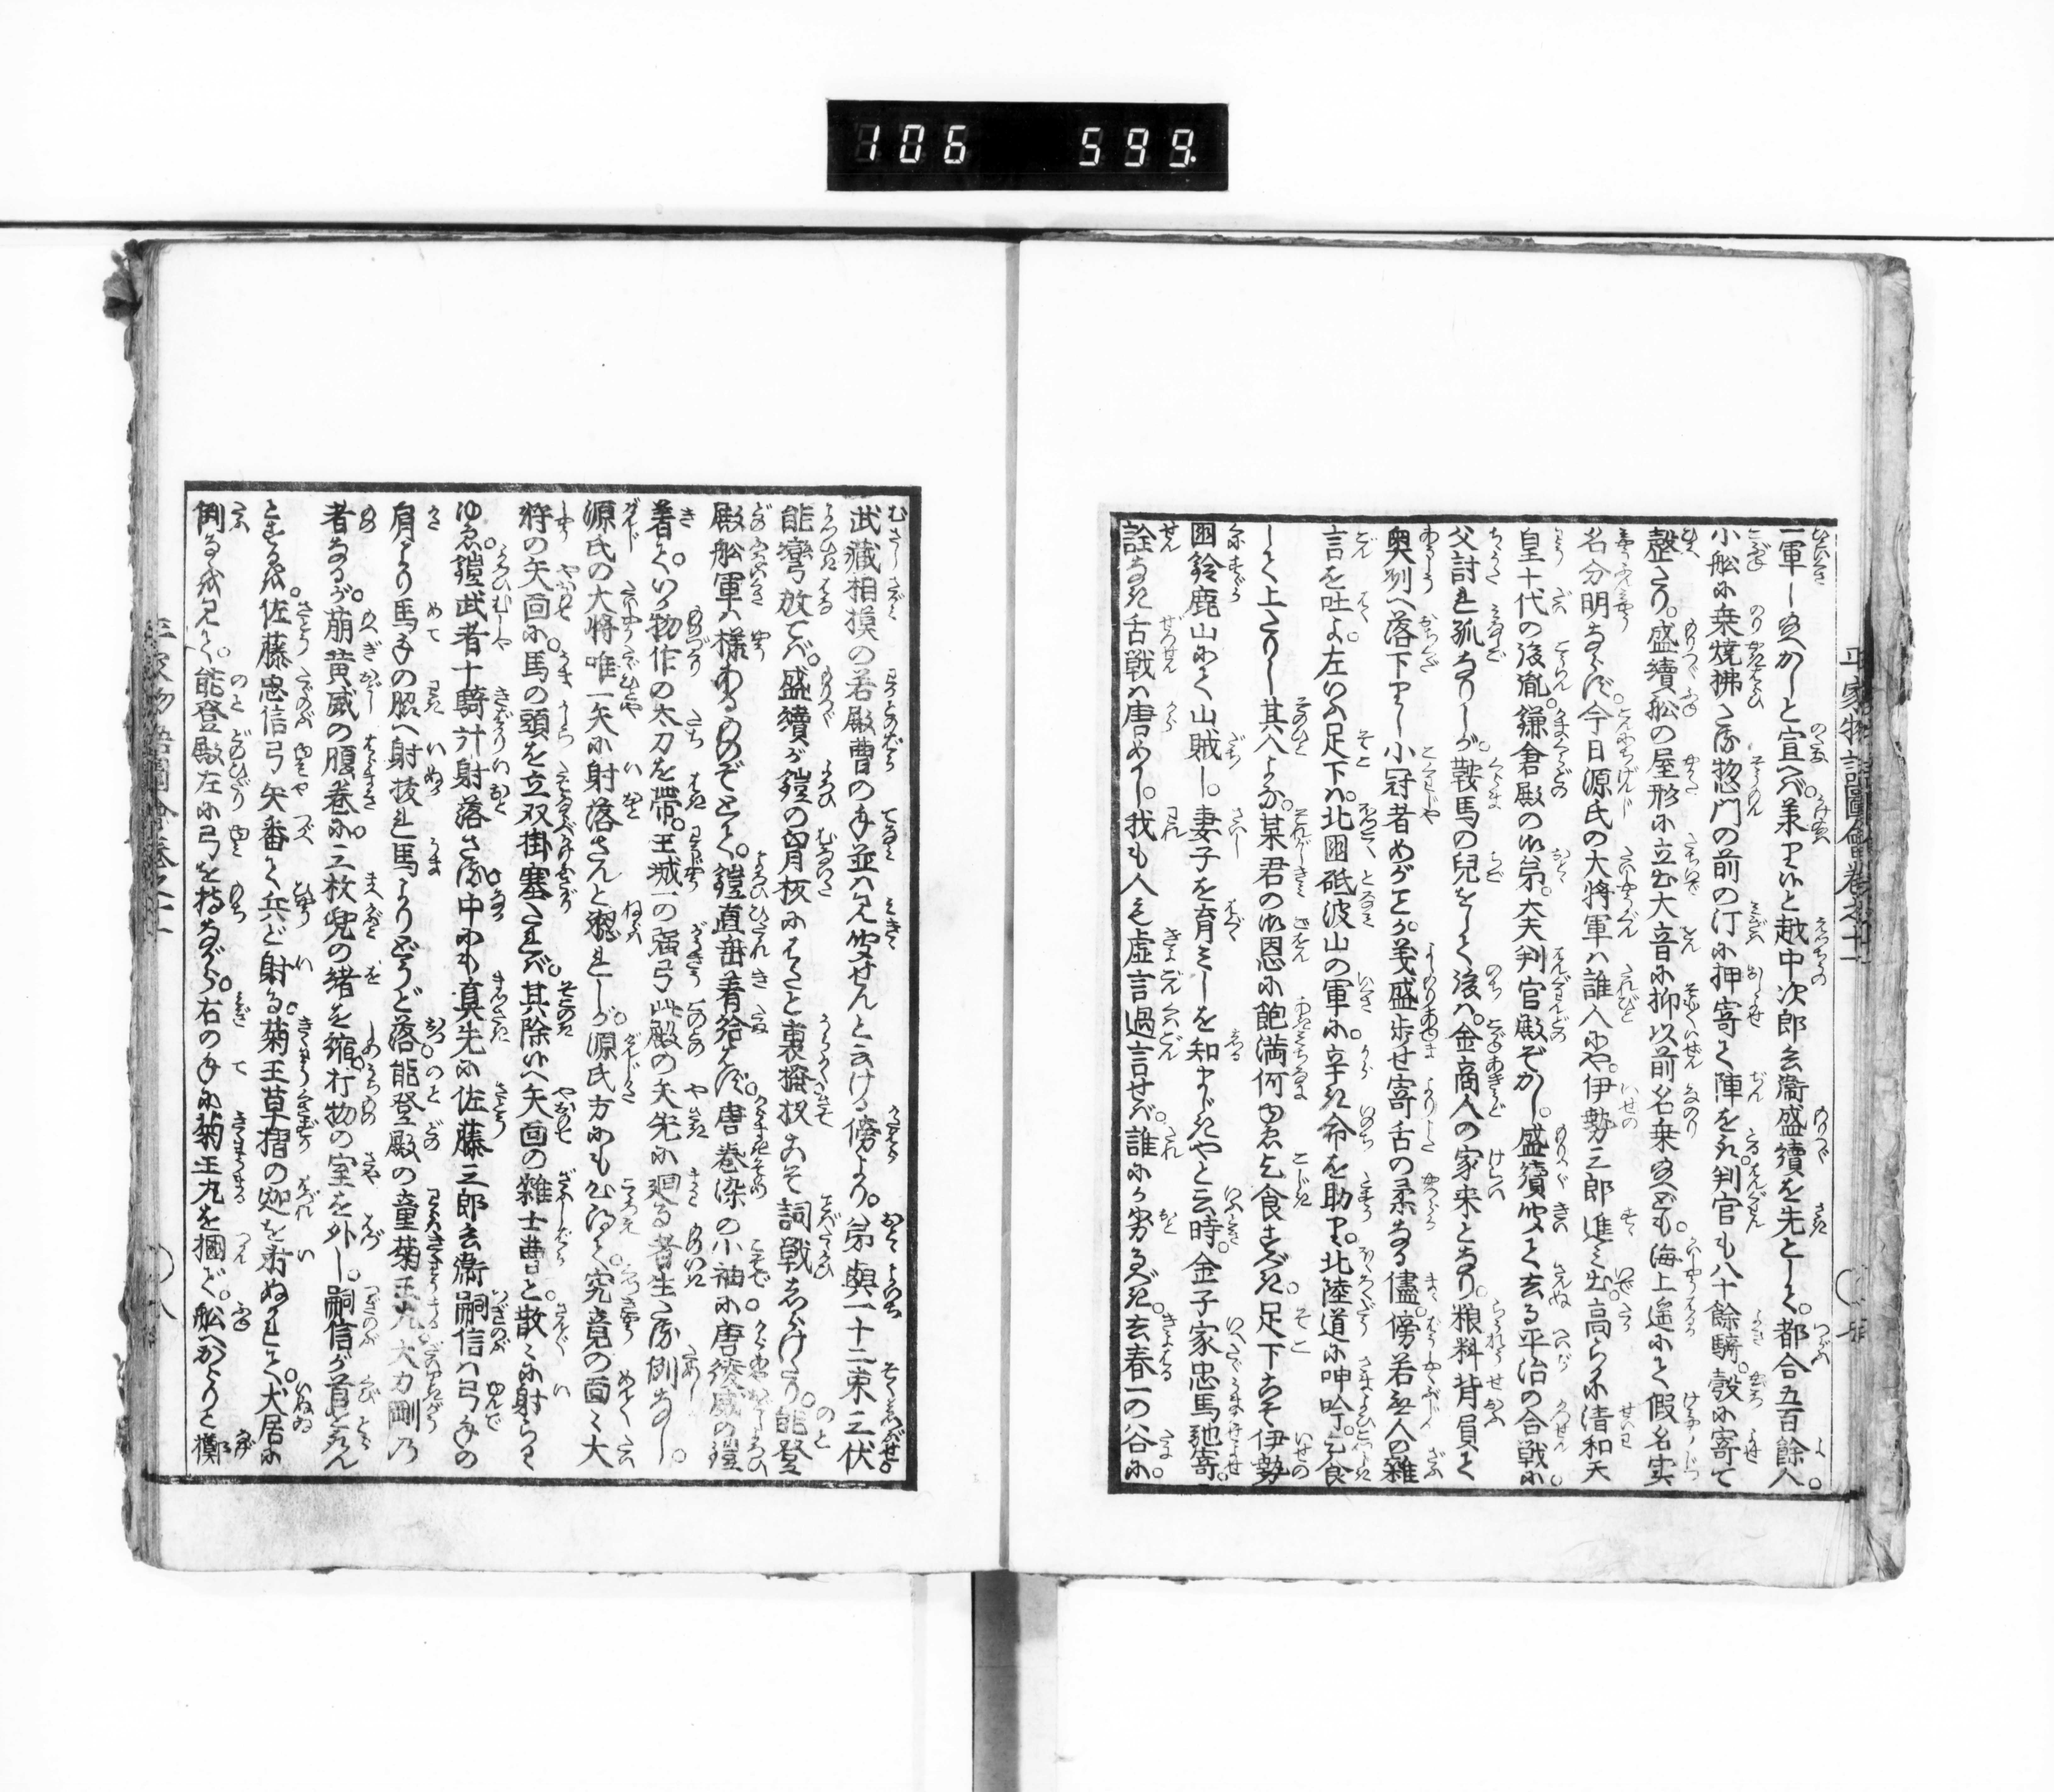 106 599
平家物語圖會卷之十一
一軍し給へかしと宣へば。美り候と越中次郎兵衞盛續を先として。都合五百餘人。
小舩に乗焼拂たる惣門の前の汀に押寄て陣をとる。判官も八十餘騎。彀に寄て
整たり。盛續舩の屋形に立出大音に抑以前名乗給へども。海上遥にて假名実
名分明ならず。今日源氏の大將軍は誰人にや。伊勢三郎進み出。高らに清和天
皇十代の後胤。鎌倉殿の御弟。大夫判官殿ぞかし。盛續聞て去る平治の合戰に。
父討れ孤なりしが。鞍馬の兒をして後は。金商人の家来となり。粮料背負て
奥州へ落下りし小冠者めがこと。義盛歩せ寄舌の柔なる儘。傍若無人の雑
言を吐よ。左いふ足下は。北國砥波山の軍に。辛き命を助り。北陸道に呻吟。乞食
して上たりし其人よな。某君の御恩に飽満何ゆゑ乞食すべき。足下こそ伊勢
國鈴鹿山にて山賊し。妻子を育みしを知まじきやと云時。金子家忠馬馳寄。
詮なき舌戰は唐めし。我も人も虚言過言せば。誰にか劣るべき。去春一の谷に。
武藏相摸の若殿曹の手並は見給はせんと云ける傍より。弟與一十二束三伏
能彎放てば。盛續が鎧の胷板にはたと裏掻扨こそ詞戰あらけたり。能登
殿舩軍は様あるものぞとて。鎧直垂着給はず。唐卷染の小袖に唐綾威の鎧
著て。いか物作の太刀を帶。王城一の强弓此殿の矢先に廻る者生たる例なし。
源氏の大將唯一矢に射落さんと窺れしが。源氏方にも心得て。究竟の面々大
將の矢面に。馬の頭を立双掛塞たれば。其除候へ矢面の雑士曹と。散々に射られ
ゆゑ。鎧武者十騎計射落さる中にも真先に佐藤三郎兵衞嗣信は弓手の
肩より馬手の脇へ射抜れ馬よりどうど落。能登殿の童菊王丸大力剛乃
者なるが。萠黄威の腹卷に。三枚兜の緒を縮。打物の室を外し。嗣信が首をとらん
とするを。佐藤忠信弓矢番て兵ど射る。菊王草摺の迦を射ぬかれて。犬居に
倒るを見て。能登殿左に弓を持ながら。右の手に菊王丸を摑で。舩へからりと擲
平家物語圖會卷之十一
〇八